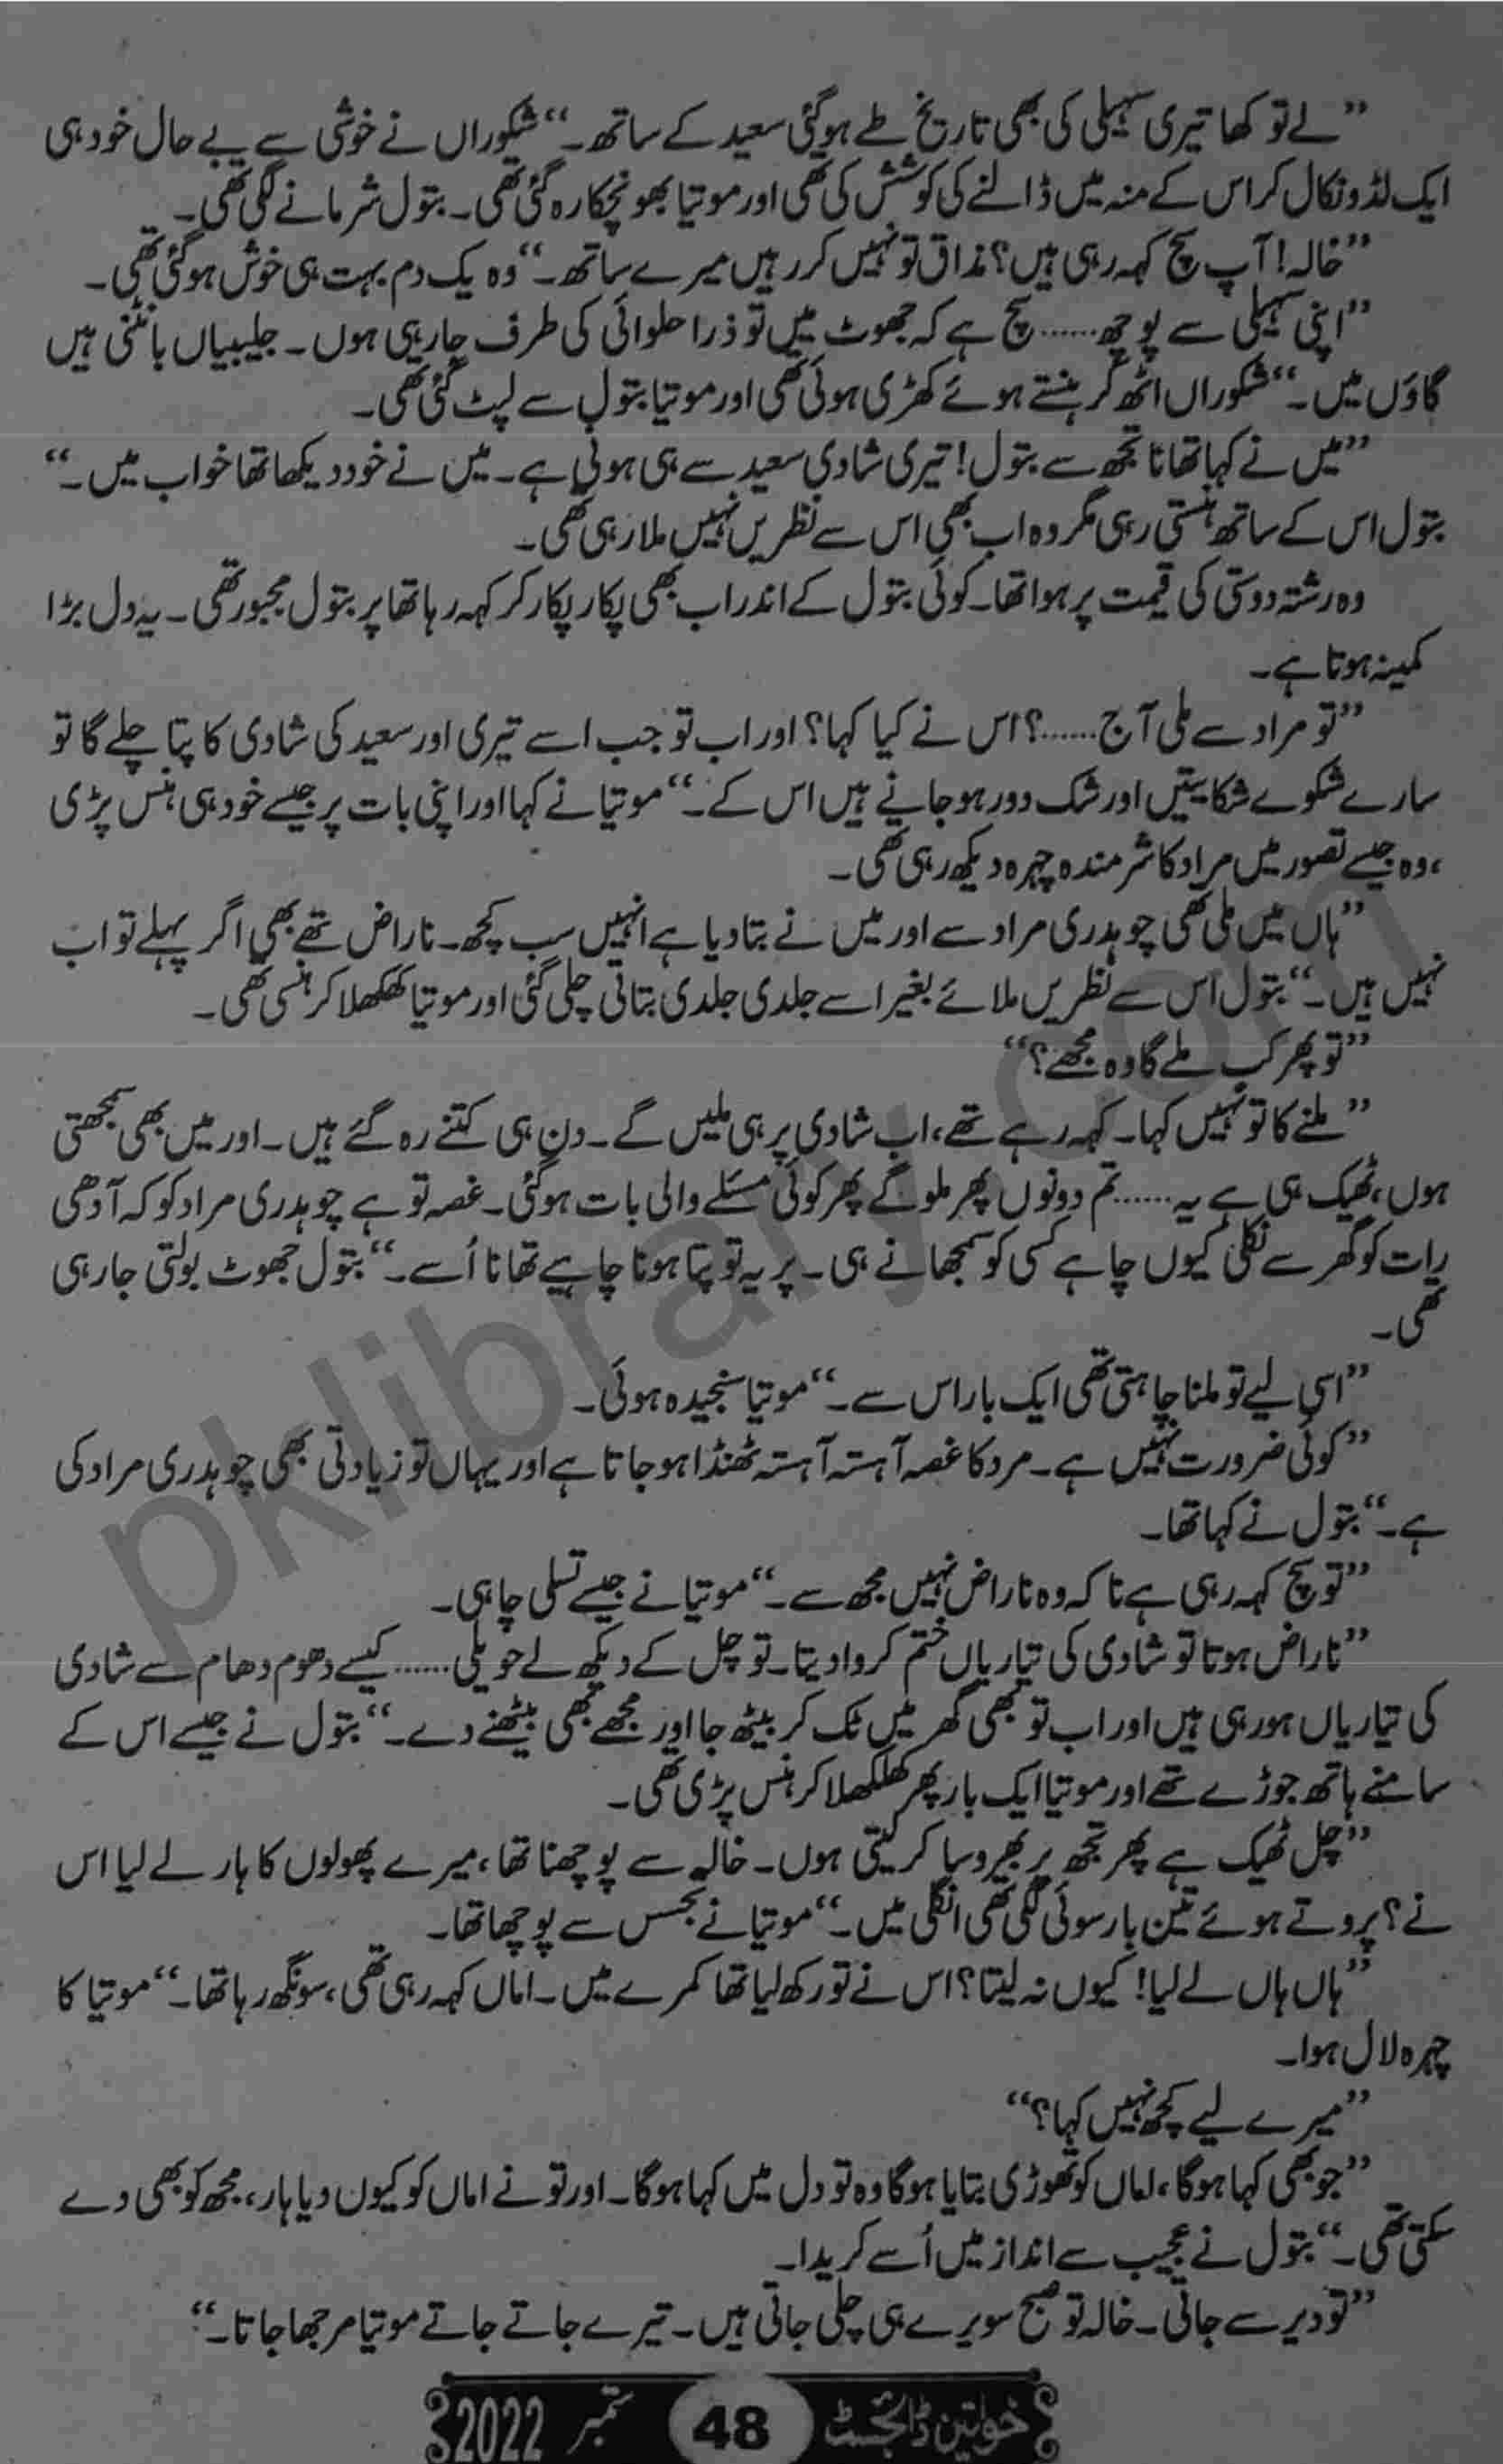 ”لے تو کھا تیری سہیلی کی بھی تاریخ طے ہوگئی سعید کے ساتھ۔“ شکوراں نے خوشی سے بے حال خود ہی
ایک لڈو نکال کر اس کے منہ میں ڈالنے کی کوشش کی تھی اور موتیا بھونچکا رہ گئی تھی۔ بتول شرمانے لگی تھی۔
”خالہ! آپ سچ کہہ رہی ہیں؟ مذاق تو نہیں کر رہیں میرے ساتھ۔“ وہ یک دم بہت ہی خوش ہوگئی تھی۔
”اپنی سہیلی سے پوچھ…… سچ ہے کہ جھوٹ میں تو ذرا حلوائی کی طرف جا رہی ہوں۔ جلیبیاں بانٹنی ہیں
گاؤں میں۔“ شکوراں اٹھ کر ہنستے ہوئے کھڑی ہوئی تھی اور موتیا بتول سے لپٹ گئی تھی۔
”میں نے کہا تھا نا تجھ سے بتول! تیری شادی سعید سے ہی ہونی ہے۔ میں نے خود دیکھا تھا خواب میں۔“
بتول اس کے ساتھ ہنستی رہی مگر وہ اب بھی اس سے نظریں نہیں ملا رہی تھی۔
وہ رشتہ دوستی کی قیمت پر ہوا تھا۔ کوئی بتول کے اندر اب بھی پکار پکار کر کہہ رہا تھا پر بتول مجبور تھی۔ یہ دل بڑا
کمینہ ہوتا ہے۔
”تو مراد سے ملی آج……؟ اس نے کیا کہا؟ اور اب تو جب اسے تیری اور سعید کی شادی کا پتا چلے گا تو
سارے شکوے شکایتیں اور شک دور ہو جانے ہیں اس کے۔“ موتیا نے کہا اور اپنی بات پر جیسے خود ہی ہنس پڑی
،وہ جیسے تصور میں مراد کا شرمندہ چہرہ دیکھ رہی تھی۔
”ہاں میں ملی تھی چوہدری مراد سے اور میں نے بتا دیا ہے انہیں سب کچھ۔ ناراض تھے بھی اگر پہلے تو اب
نہیں ہیں۔“ بتول اس سے نظریں ملائے بغیر اسے جلدی جلدی بتاتی چلی گئی اور موتیا کھکھلا کر ہنسی تھی۔
”تو پھر کب ملے گا وہ مجھے؟“
”ملنے کا تو نہیں کہا۔ کہہ رہے تھے، اب شادی پر ہی ملیں گے۔ دن ہی کتنے رہ گئے ہیں۔ اور میں بھی سمجھتی
ہوں، ٹھیک ہی ہے یہ…… تم دونوں پھر ملو گے پھر کوئی مسئلے والی بات ہوگئی۔ غصہ تو ہے چوہدری مراد کو کہ آدھی
رات کو گھر سے نکلی کیوں چاہے کسی کو سمجھانے ہی۔ پر یہ تو پتا ہونا چاہیے تھا نا اُسے۔“ بتول جھوٹ بولتی جا رہی
تھی۔
”اسی لیے تو ملنا چاہتی تھی ایک بار اس سے۔“ موتیا سنجیدہ ہوئی۔
”کوئی ضرورت نہیں ہے۔ مرد کا غصہ آہستہ آہستہ ٹھنڈا ہو جاتا ہے اور یہاں تو زیادتی بھی چوہدری مراد کی
ہے۔“ بتول نے کہا تھا۔
”تو سچ کہہ رہی ہے نا کہ وہ ناراض نہیں مجھ سے۔“ موتیا نے جیسے تسلی چاہی۔
”ناراض ہوتا تو شادی کی تیاریاں ختم کروا دیتا۔ تو چل کے دیکھ لے حویلی…… کیسے دھوم دھام سے شادی
کی تیاریاں ہو رہی ہیں اور اب تو بھی گھر میں ٹک کر بیٹھ جا اور مجھے بھی بیٹھنے دے۔“ بتول نے جیسے اس کے
سامنے ہاتھ جوڑے تھے اور موتیا ایک بار پھر کھلکھلا کر ہنس پڑی تھی۔
”چل ٹھیک ہے پھر تجھ پر بھروسا کر لیتی ہوں۔ خالہ سے پوچھنا تھا، میرے پھولوں کا ہار لے لیا اس
نے؟ پروتے ہوئے تین بار سوئی لگی تھی انگلی میں۔“ موتیا نے تجسس سے پوچھا تھا۔
”ہاں ہاں لے لیا! کیوں نہ لیتا؟ اس نے تو رکھ لیا تھا کمرے میں۔ اماں کہہ رہی تھی، سونگھ رہا تھا۔“ موتیا کا
چہرہ لال ہوا۔
”میرے لیے کچھ نہیں کہا؟“
”جو بھی کہا ہوگا، اماں کو تھوڑی بتایا ہوگا وہ تو دل میں کہا ہوگا۔ اور تو نے اماں کو کیوں دیا ہار، مجھ کو بھی دے
سکتی تھی۔“ بتول نے عجیب سے انداز میں اُسے کریدا۔
”تو دیر سے جاتی۔ خالہ تو صبح سویرے ہی چلی جاتی ہیں۔ تیرے جاتے جاتے موتیا مرجھا جاتا۔“
خواتین ڈائجسٹ 48 ستمبر 2022
pklibrary.com